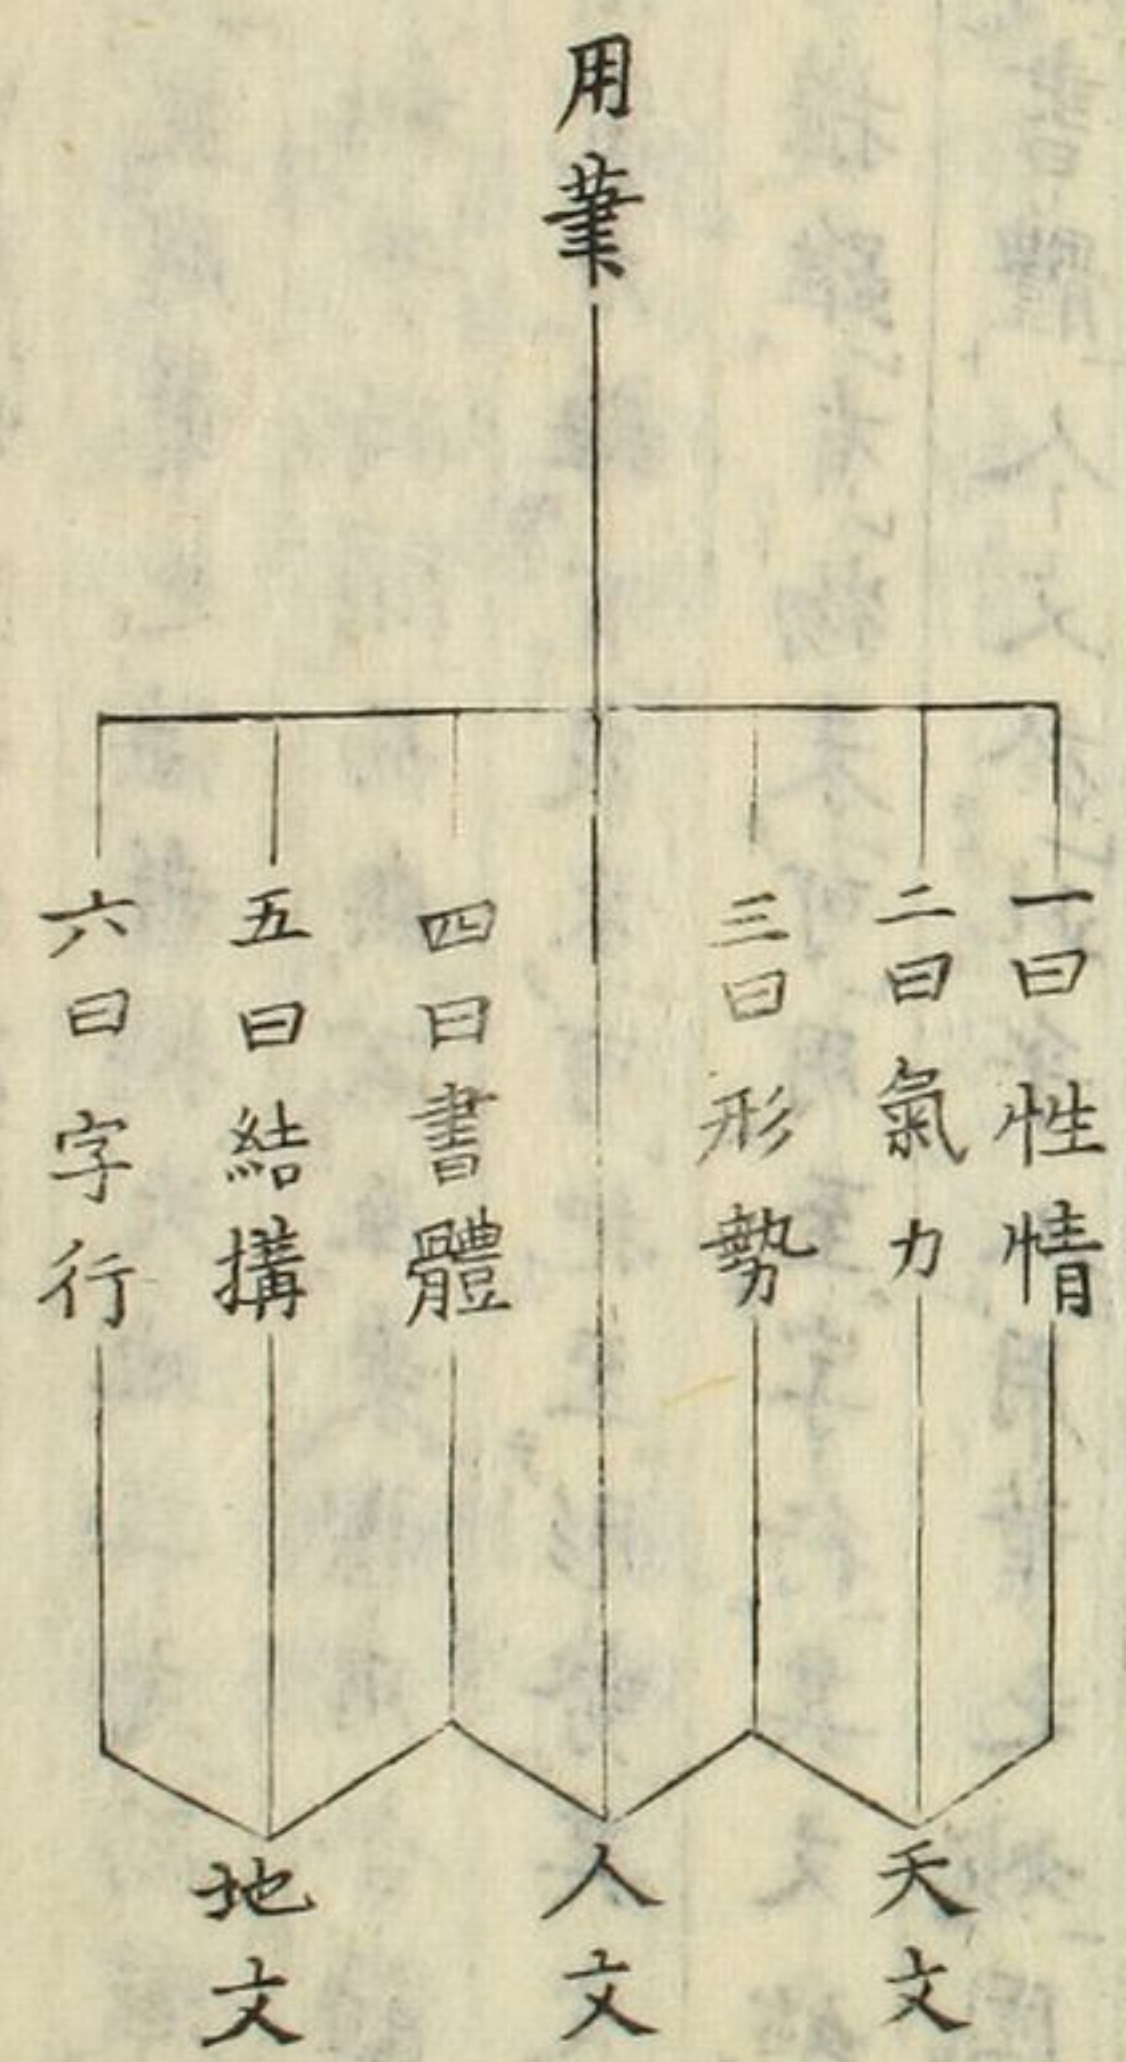 用筆
一曰性情
二曰氣力
三曰形勢
四曰書體
五曰結搆
六曰字行
天文
人文
地文